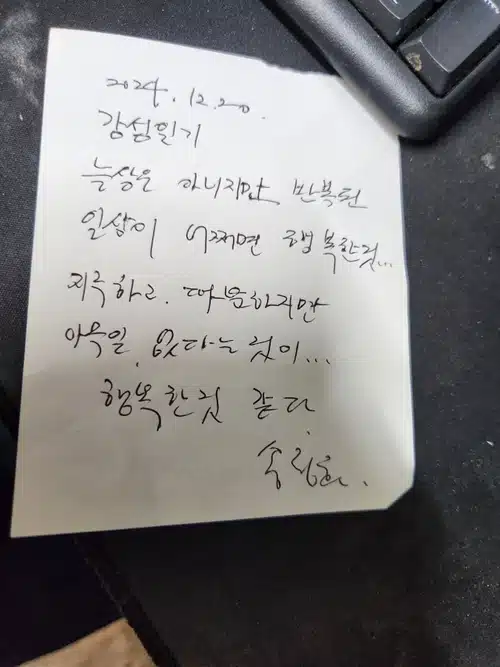 2024.12.20.
감성일기
늘상은 아니지만 반복된
일상이 어쩌면 행복한것...
지루하고. 따분하지만
아무일 없다는 것이...
행복한것 같다.